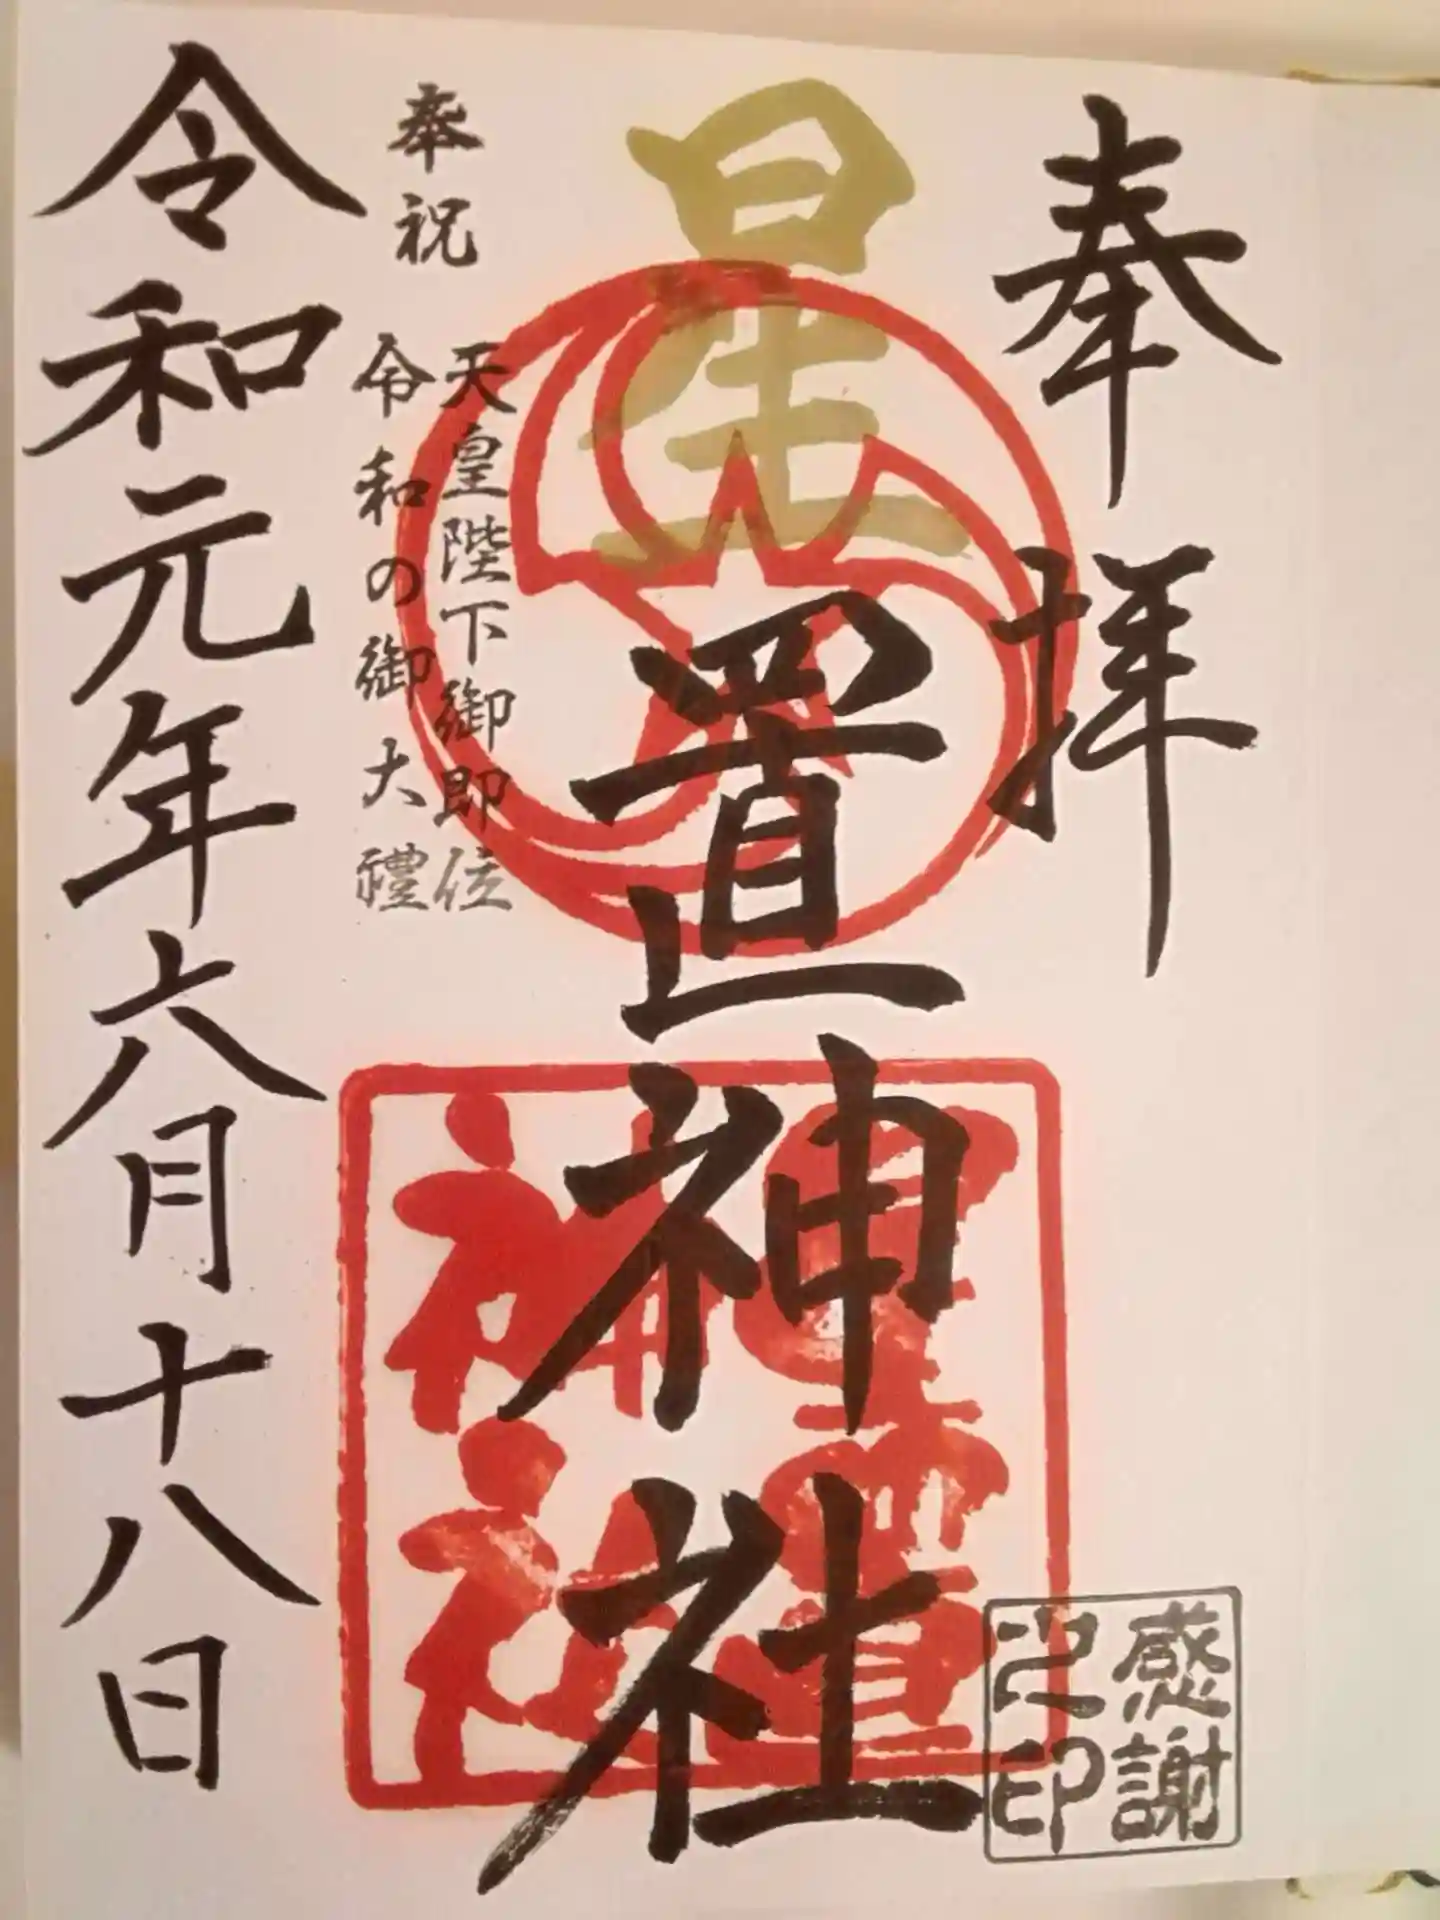 奉拝
星置神社
奉祝
天皇陛下御即位
令和の御大禮
令和元年六月十八日
星置
神社
感謝
之印